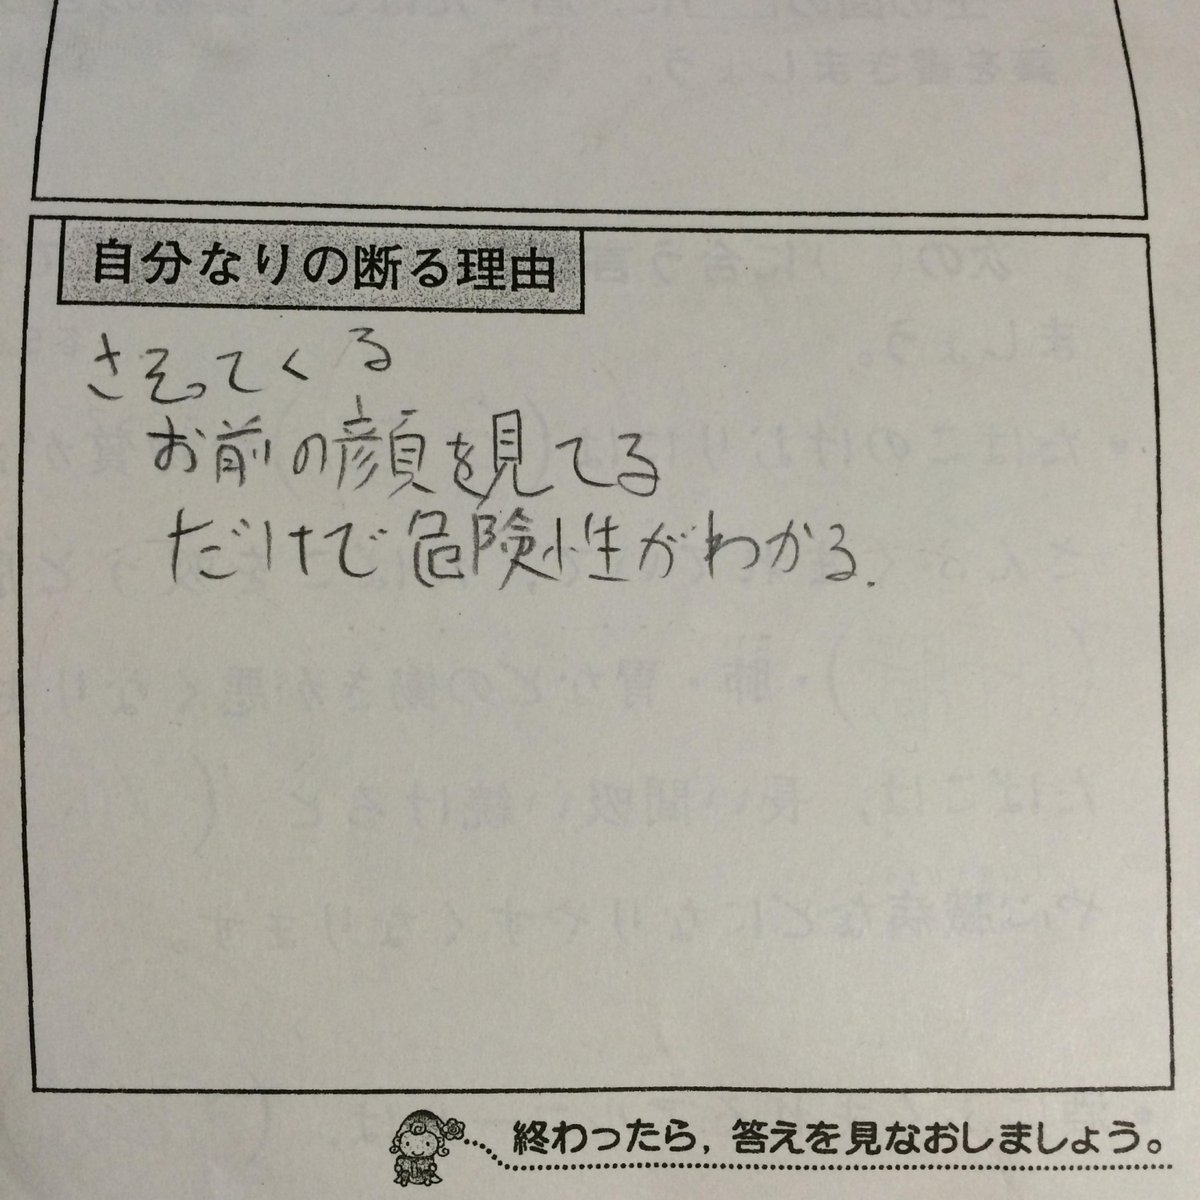 自分なりの断る理由
さそってくる
お前の顔を見てる
だけで危険性がわかる.
終わったら,答えを見なおしましょう。